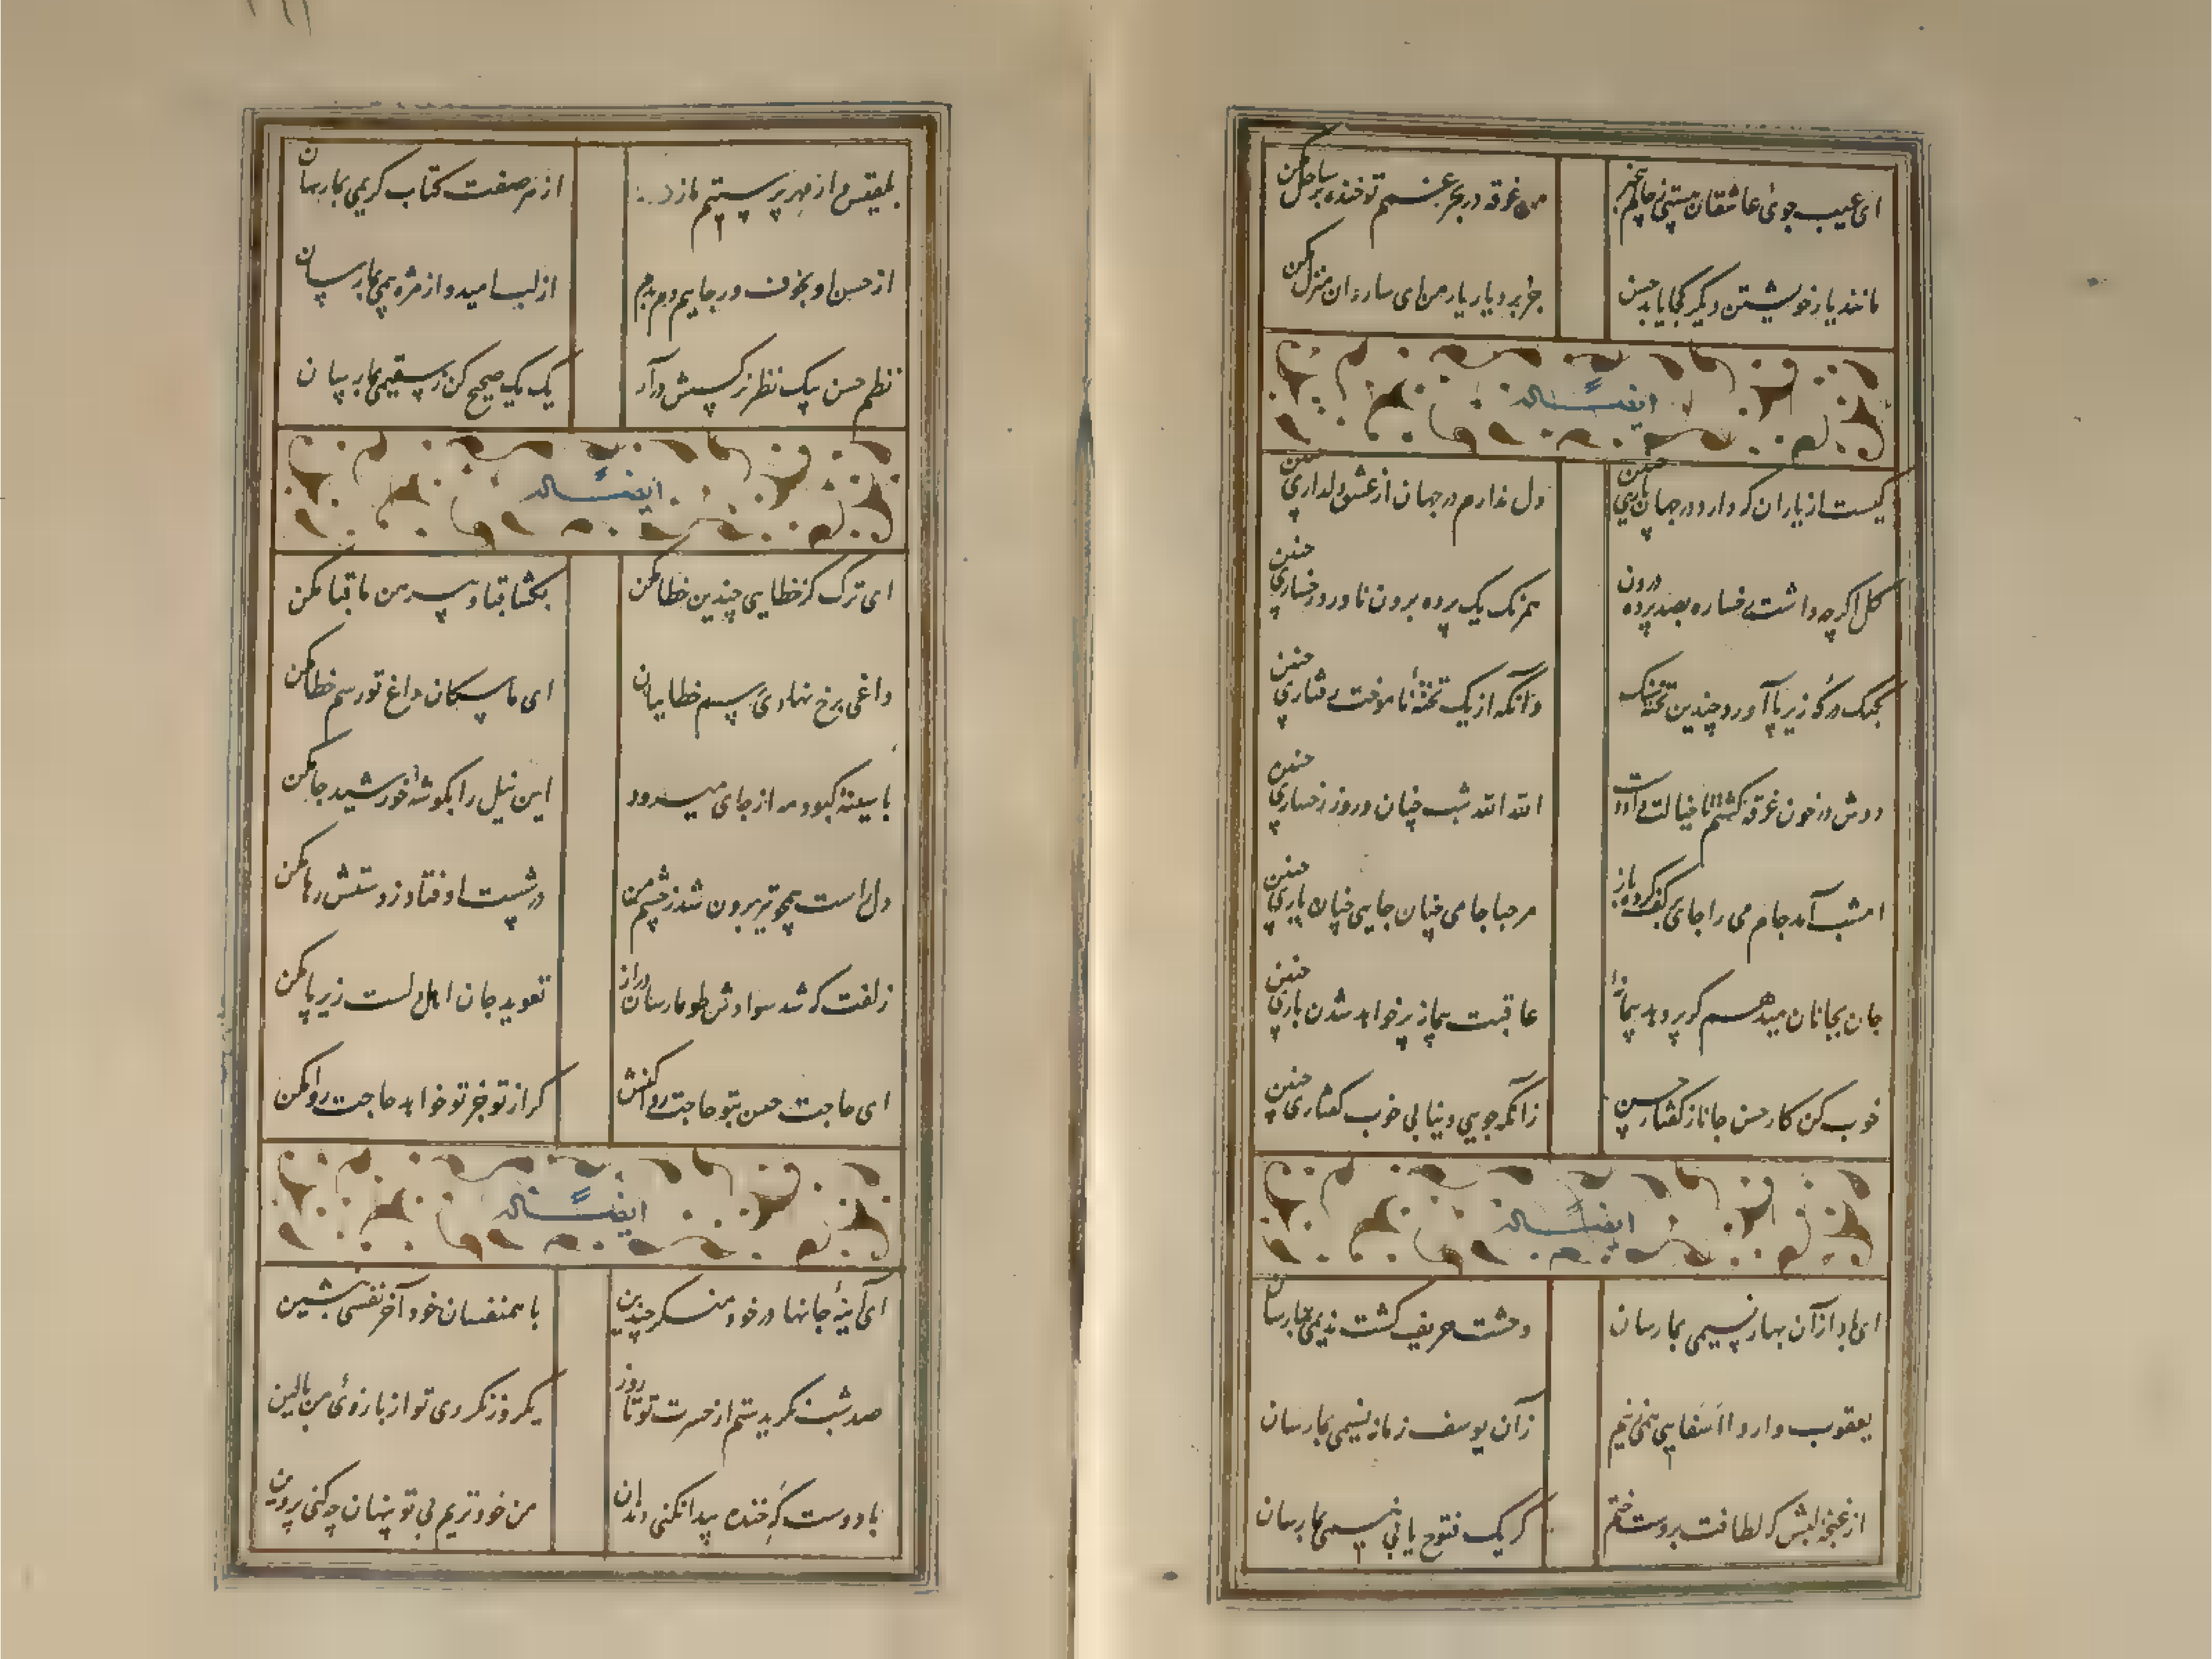 ای عیب جوی عاشقان
من غرقه در بحر غم تو خنده بر ساحل مکن
مانند یار خویشتن دیگر کجا یابد حسن
جز بر دیار یار من ای ساروان منزل مکن
ایضاً له
کیست از یاران که دارد در جهان یاری چنین
دل ندارم در جهان از عشق دلداری چنین
کل اکرچه داشت رخساره بصد پرده درون
همرنک یک پرده برون ناورد رخساری چنین
زیر پا آورد چندین تخته
وآنکه از یک تخته ناموخت رفتاری چنین
دوش در خون غرقه کشتم تا خیالت
الله الله شب چنان و روز رخساری چنین
امشب آمد جام می را جای کف کرده باز
مرحبا جامی چنان جایی چنان یاری چنین
جان بجانان میدهم کر پر دهد پیمانه
عاقبت پیمانه پر خواهد شدن باری چنین
خوب کن کار حسن جانا ز کفتار حسن
زانکه جویی و نیابی خوب کفتاری چنین
ایضاً له
ای باد از آن بهار نسیمی بما رسان
وحشت حریف کشت ندیمی بما رسان
یعقوب وار وا اسفا
زان یوسف زمانه نسیمی بما رسان
از غنچه لبش که لطافت بروست ختم
بما رسان
بلقیس
از هر صفت کتاب کریمی بما رسان
از حسن او بخوف و رجاییم دم بدم
از لب امید و از مژه بیمی بما رسان
نظم حسن بیک نظر نرکسش درآر
یک یک صحیح کن ز سقیمی بما رسان
ایضاً له
ای ترک کز خطایی چندین خطا مکن
بکشا قبا و پیرهن ما قبا مکن
داغی برخ نهادی رسم خطاییان
ای ما سکان داغ تو رسم خطا مکن
کبود مه از جای میرود
این نیل را بکوشه خورشید جا مکن
دل راست همچو تیر برون شد ز چشم من
در شست او فتاد ز دستش رها مکن
زلفت که شد سوادش طومارسان دراز
تعویذ جان اهل دلست زیر پا مکن
ای حاجت حسن بتو حاجت روا کنش
کر از تو جز تو خواهد حاجت روا مکن
ایضاً له
ای آینه جانها در خود منکر چندین
با همنفسان خود آخر نفسی بنشین
صد شب بکریستم از حسرت تو تا روز
یکروز نکردی تو از بازوی من بالین
با دوست که خنده پیدا نکنی دندان
من خود تریم بی تو پنهان چه کنی پروین